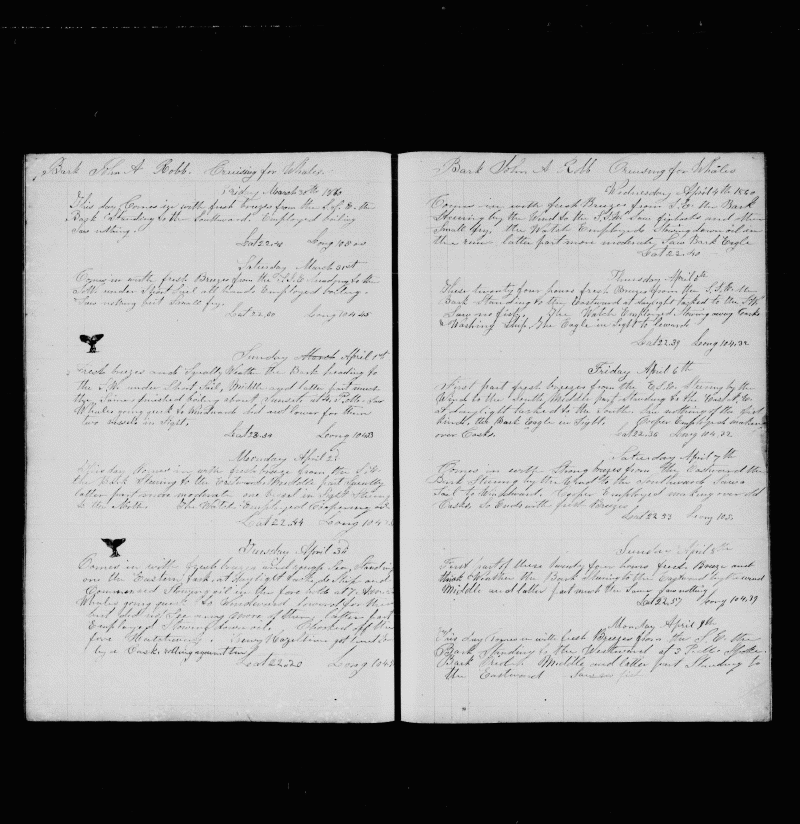 Bark John A Robb. Cruising for Whales.
Friday March 30th 1860
This day Comes in with fresh breezes from the S.S.E the
Bark Standing to the Southward. Employed boiling
Saw nothing.
Lat 22.40 Long 105.00
Saturday March 31st
Comes in with fresh Breezes from the S.S.E heading to the
under Short Sail all hands Employed boiling.
Saw nothing but Small fry.
Lat 22.50 Long 104.45
Sunday March April 1st
Fresh breezes and Squally Weather the Bark heading to
the S.W. under Short Sail, Middle and latter part much
the Same finished boiling about Sunset at 4 P.M. Saw
Whales going quick to windward but not lower for them
two vessels in Sight.
Lat 23.30 Long 104.33
Monday April 2d
This day Comes in with fresh breeze from the S.W.
the Bark Steering to the Eastward Middle part Squally
latter part more moderate one vessel in Sight Steering
to the North. The Watch Employed
Lat 22.44 Long 104.
Tuesday April 3d
Comes in with fresh breezes and rough Sea, Standing
on the Eastern tack at daylight tacked Ship and
Commenced Stowing oil in the fore hold at 7. Saw
Whales going quick to Windward lowered for them
but did not See any more of them, latter part
Employed Stowing down oil. off the
fore Hatchway. Henry Hazeltine got hurt
by a Cask rolling against him
Lat 22.20 Long 104.
Bark John A Robb Cruising for Whales
Wednesday April 4th 1860
Comes in with fresh Breezes from S.W. the Bark
Steering by the Wind to the S.S.W. Saw finbacks and other
Small fry, the Watch Employed Stowing down oil in
the run latter part more moderate, Saw Bark Eagle
Lat 22.40
Thursday April 5th
These twenty four hours fresh Breezes from the S.S.W. the
Bark Standing to the Eastward at daylight tacked to the
Saw no fish, The Watch Employed Stowing away Casks
& Washing Ship, the Eagle in Sight to leeward
Lat 22.39 Long 104.32
Friday April 6th
First part fresh breezes from the E.S.E. Steering by the
Wind to the South, Middle part Standing to the
at daylight tacked to the South Saw nothing of the right
kind, the Bark Eagle in Sight. Cooper Employed making
over Casks. Lat 22.38 Long 104.32
Saturday April 7th
Comes in with Strong breezes from the Eastward the
Bark Steering by the Wind to the Southward Saw a
Sail to Windward. Cooper Employed making over old
Casks. So Ends with fresh Breezes
Lat 22.53 Long 105.
Sunday April 8th
First part of these twenty four hours fresh Breeze and
thick Weather the Bark Steering to the Eastward by the wind
Middle and latter part much the Same Saw nothing
Lat 22.57 Long 104.39
Monday April 9th
This day Comes in with fresh Breezes from the S.E. the
Bark Standing to the Westward at 3 P.M. Spoke
Bark Middle and latter part Standing to
the Eastward Saw no fish